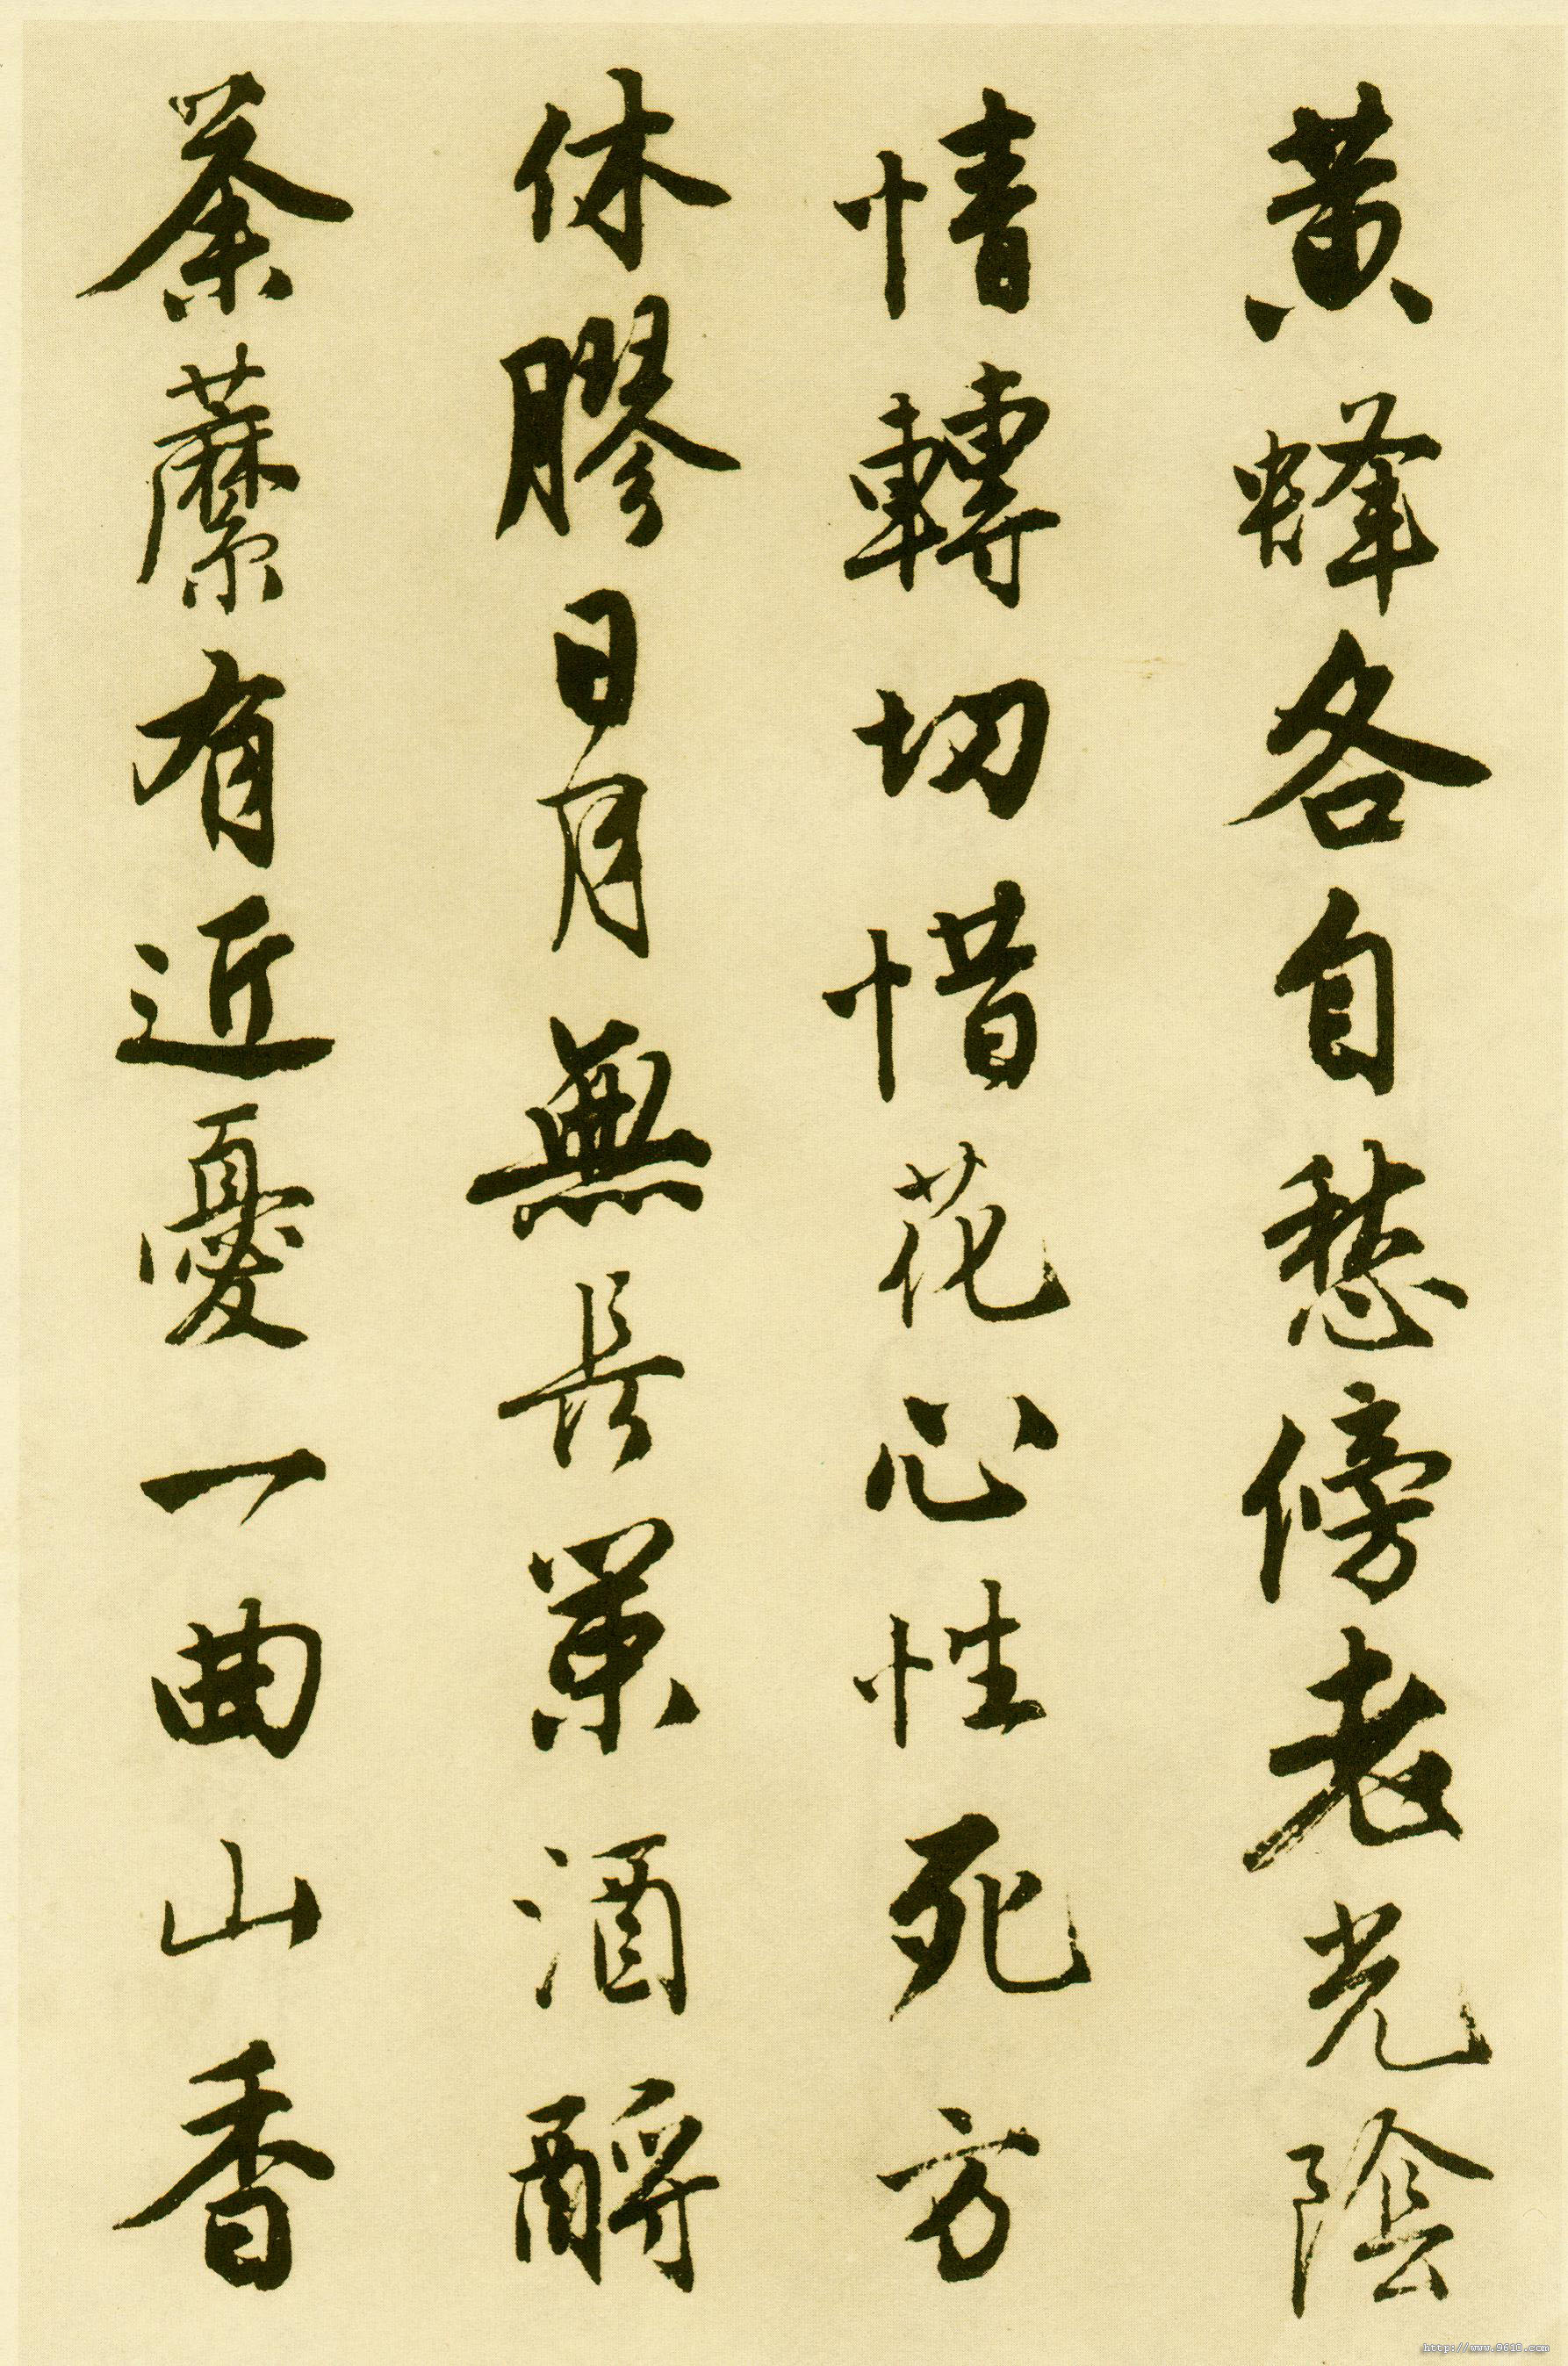 黄蜂各自愁傍老光陰
情轉切惜花心性死方
休膠日月無長策酒酹
荼蘼有近憂一曲山香
http://www.9610.com